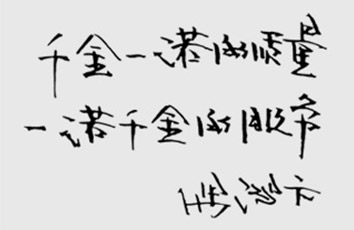 千金一诺的质量
一诺千金的服务